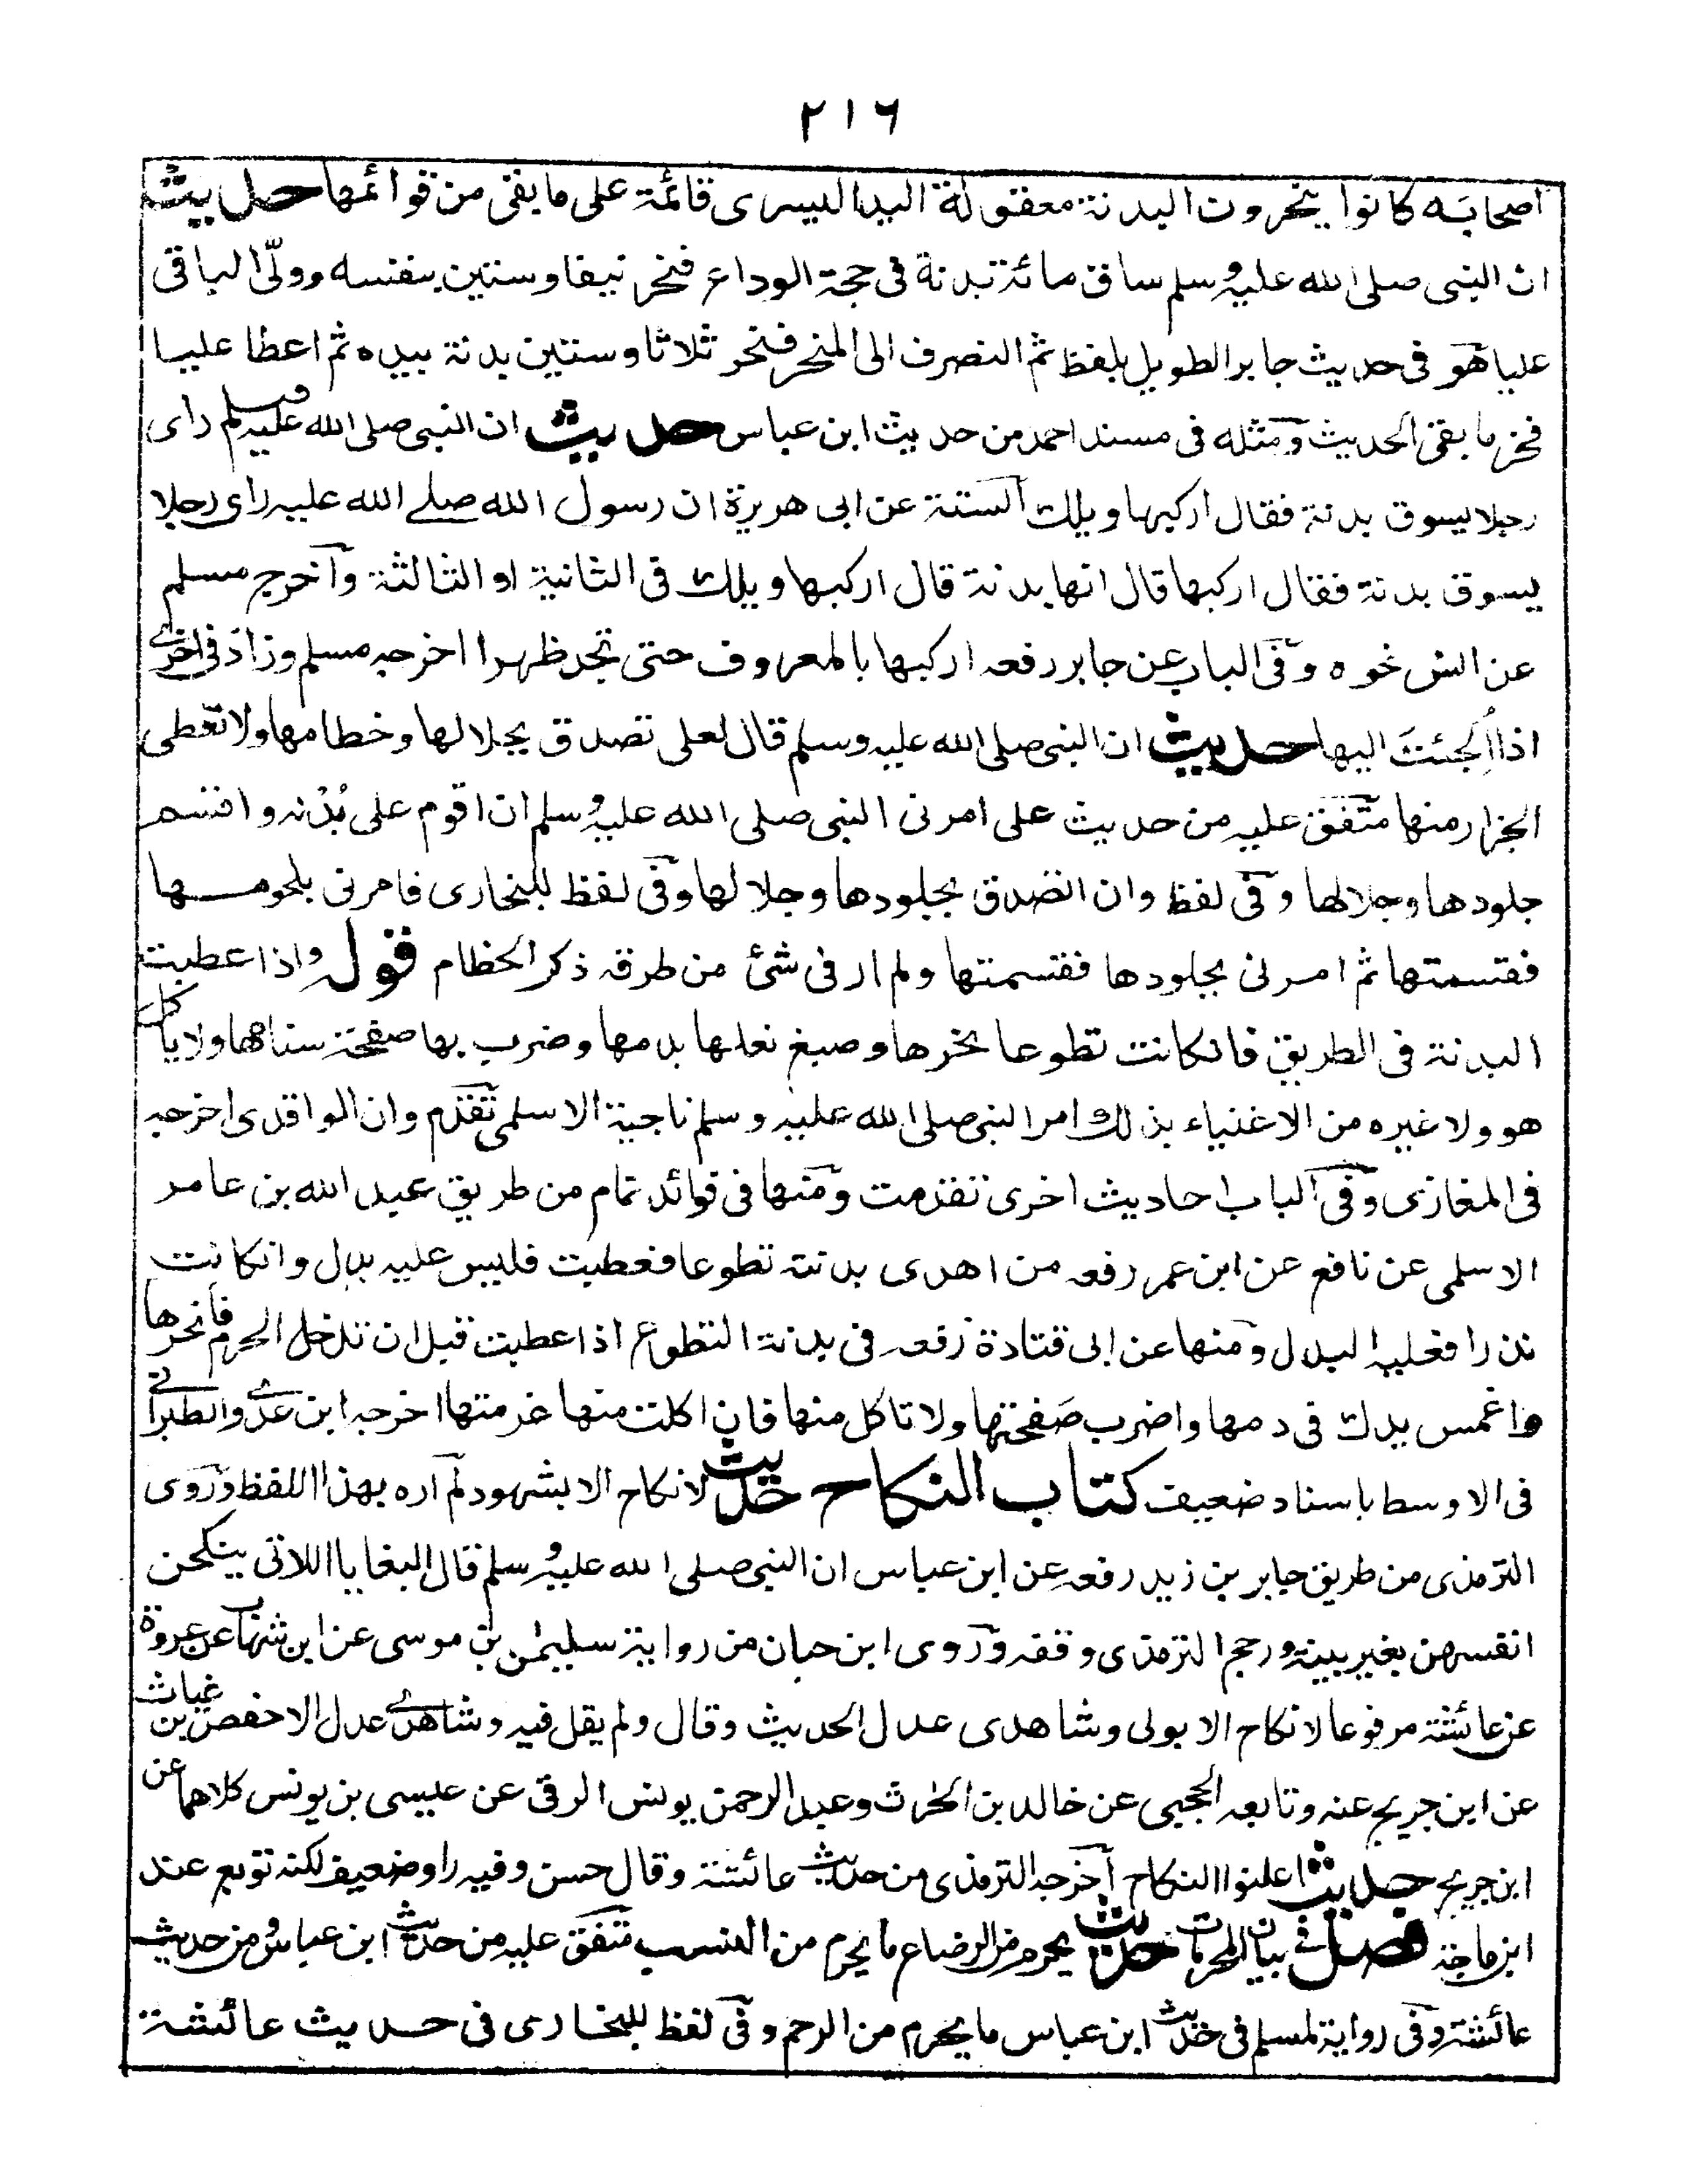 ٢١٦
اصحابه كانوا ينحرون البدنة معقولة اليد اليسرى قائمة على ما بقى من قوائمها حديث
ان النبى صلى الله عليه وسلم ساق مائة بدنة فى حجة الوداع فنحر نيفا وستين بنفسه وولّى الباقى
عليا هو فى حديث جابر الطويل بلفظ ثم انصرف الى المنحر فنحر ثلاثا وستين بدنة بيده ثم اعطا عليا
فنحر ما بقى الحديث ومثله فى مسند احمد من حديث ابن عباس حديث ان النبى صلى الله عليه وسلم راى
رجلا يسوق بدنة فقال اركبها ويلك الستة عن ابى هريرة ان رسول الله صلے الله عليه راى رجلا
يسوق بدنة فقال اركبها قال انها بدنة قال اركبها ويلك فى الثانية او الثالثة وآخرج مسلم
عن انس نحوه وفى الباب عن جابر رفعه اركبها بالمعروف حتى تجد ظهرا اخرجه مسلم وزاد فى اخرے
اذا اُلجئتَ اليها حديث ان النبى صلى الله عليه وسلم قال لعلى تصدق بجلالها وخطامها ولا تعطى
الجزار منها متفق عليه من حديث على امرنى النبى صلى الله عليه وسلم ان اقوم على بُدْنه واقسم
جلودها وجلالها وفى لفظ وان اتصدق بجلودها وجلالها وفى لفظ للبخارى فامرنى بلحومها
فقسمتها ثم امرنى بجلودها فقسمتها ولم ار فى شئ من طرقه ذكر الخطام قوله واذا عطبت
البدنة فى الطريق فانكانت تطوعا نحرها وصبغ نعلها بدمها وضرب بها صفحة سنامها ولا ياكل
هو ولا غيره من الاغنياء بذلك امر النبى صلى الله عليه وسلم ناجية الاسلمى تقدم وان الواقدى اخرجه
فى المغازى وفى الباب احاديث اخرى تقدمت ومنها فى فوائد تمام من طريق عبد الله بن عامر
الاسلمى عن نافع عن ابن عمر رفعه من اهدى بدنة تطوعا فعطبت فليس عليه بدل وانكانت
نذرا فعليه البدل ومنها عن ابى قتادة رفعه فى بدنة التطوع اذا عطبت قبل ان تدخل الحرم فانحرها
واغمس يدك فى دمها واضرب صَفحتها ولا تاكل منها فان اكلت منها غرمتها اخرجه ابن عدے والطبرانے
فى الاوسط باسناد ضعيف كتاب النكاح حديث لا نكاح الا بشهود لم آره بهذا اللفظ وروى
الترمذى من طريق جابر بن زيد رفعه عن ابن عباس ان النبى صلى الله عليه وسلم قال البغايا اللاتى ينكحن
انفسهن بغير بينة ورجح الترمذى وقفه وروى ابن حبان من رواية سليمٰن بن موسى عن ابن شهاب عن عروة
عن عائشة مرفوعا لا نكاح الا بولى وشاهدى عدل الحديث وقال ولم يقل فيه وشاهدے عدل الا حفص بن غياث
عن ابن جريج عنه وتابعه الحجبى عن خالد بن الحٰرث وعبد الرحمن يونس الرقى عن عيسى بن يونس كلاهما عن
ابن جريج حديث اعلنوا النكاح آخرجه الترمذى من حديث عائشة وقال حسن وفيه راو ضعيف لكنه توبع عند
ابن ماجة فصل فے بيان المحرمات حديث يحرم من الرضاع ما يحرم من النسب متفق عليه من حديث ابن عباس ومن حديث
عائشة وفى رواية لمسلم فى حديث ابن عباس ما يحرم من الرحم وفى لفظ للبخارى فى حديث عائشة